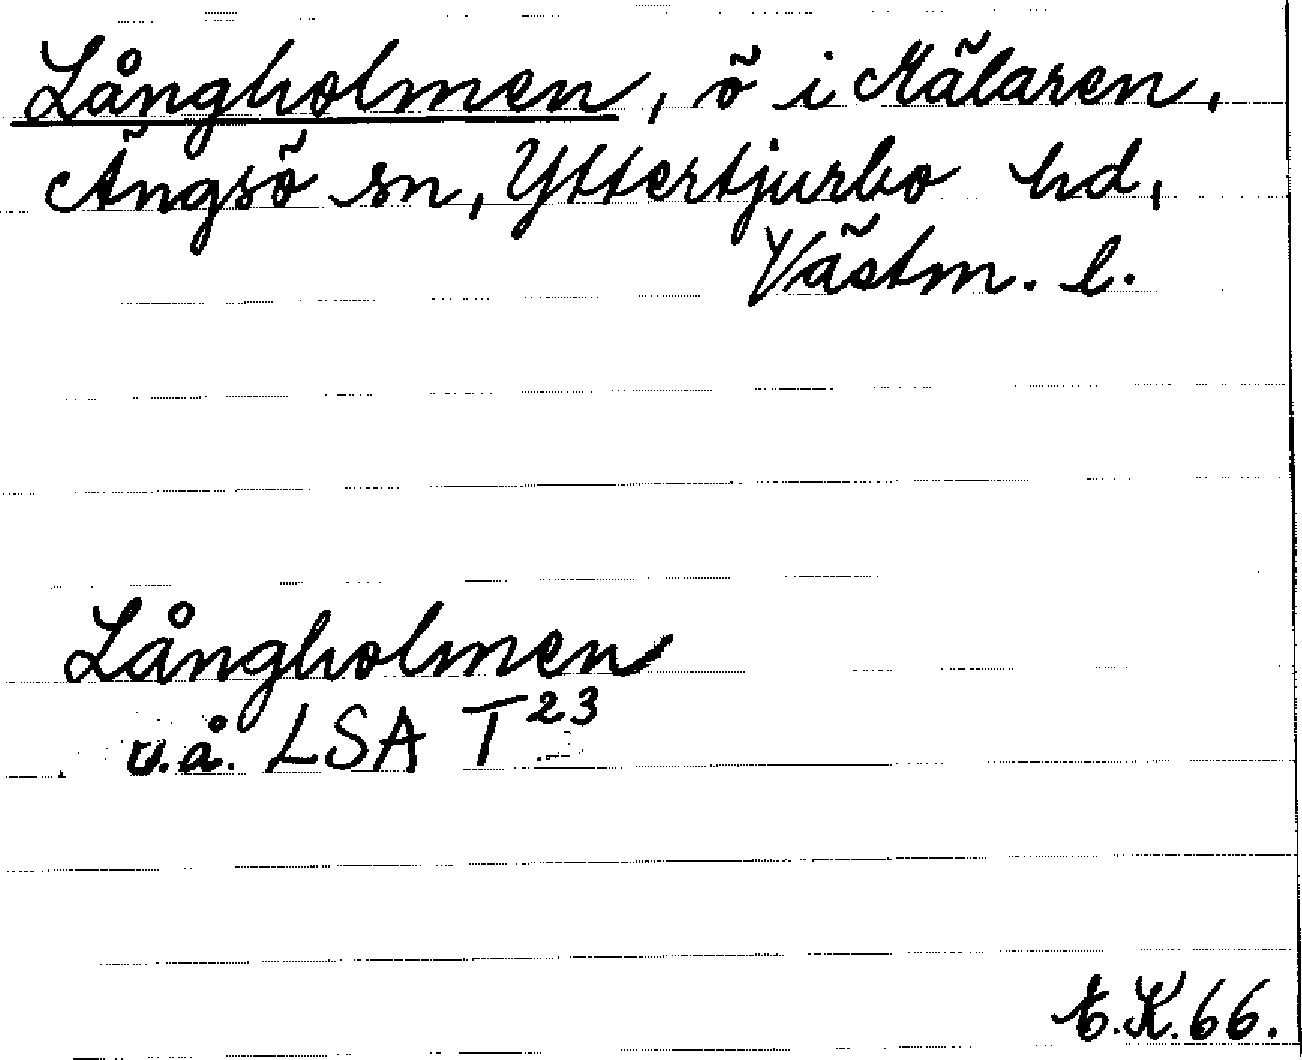 Långholmen, ö i Mälaren,
Ängsö sn, Yttertjurbo hd,
Västm. l.
Långholmen
u.å. LSA T²³
E.K. 66.